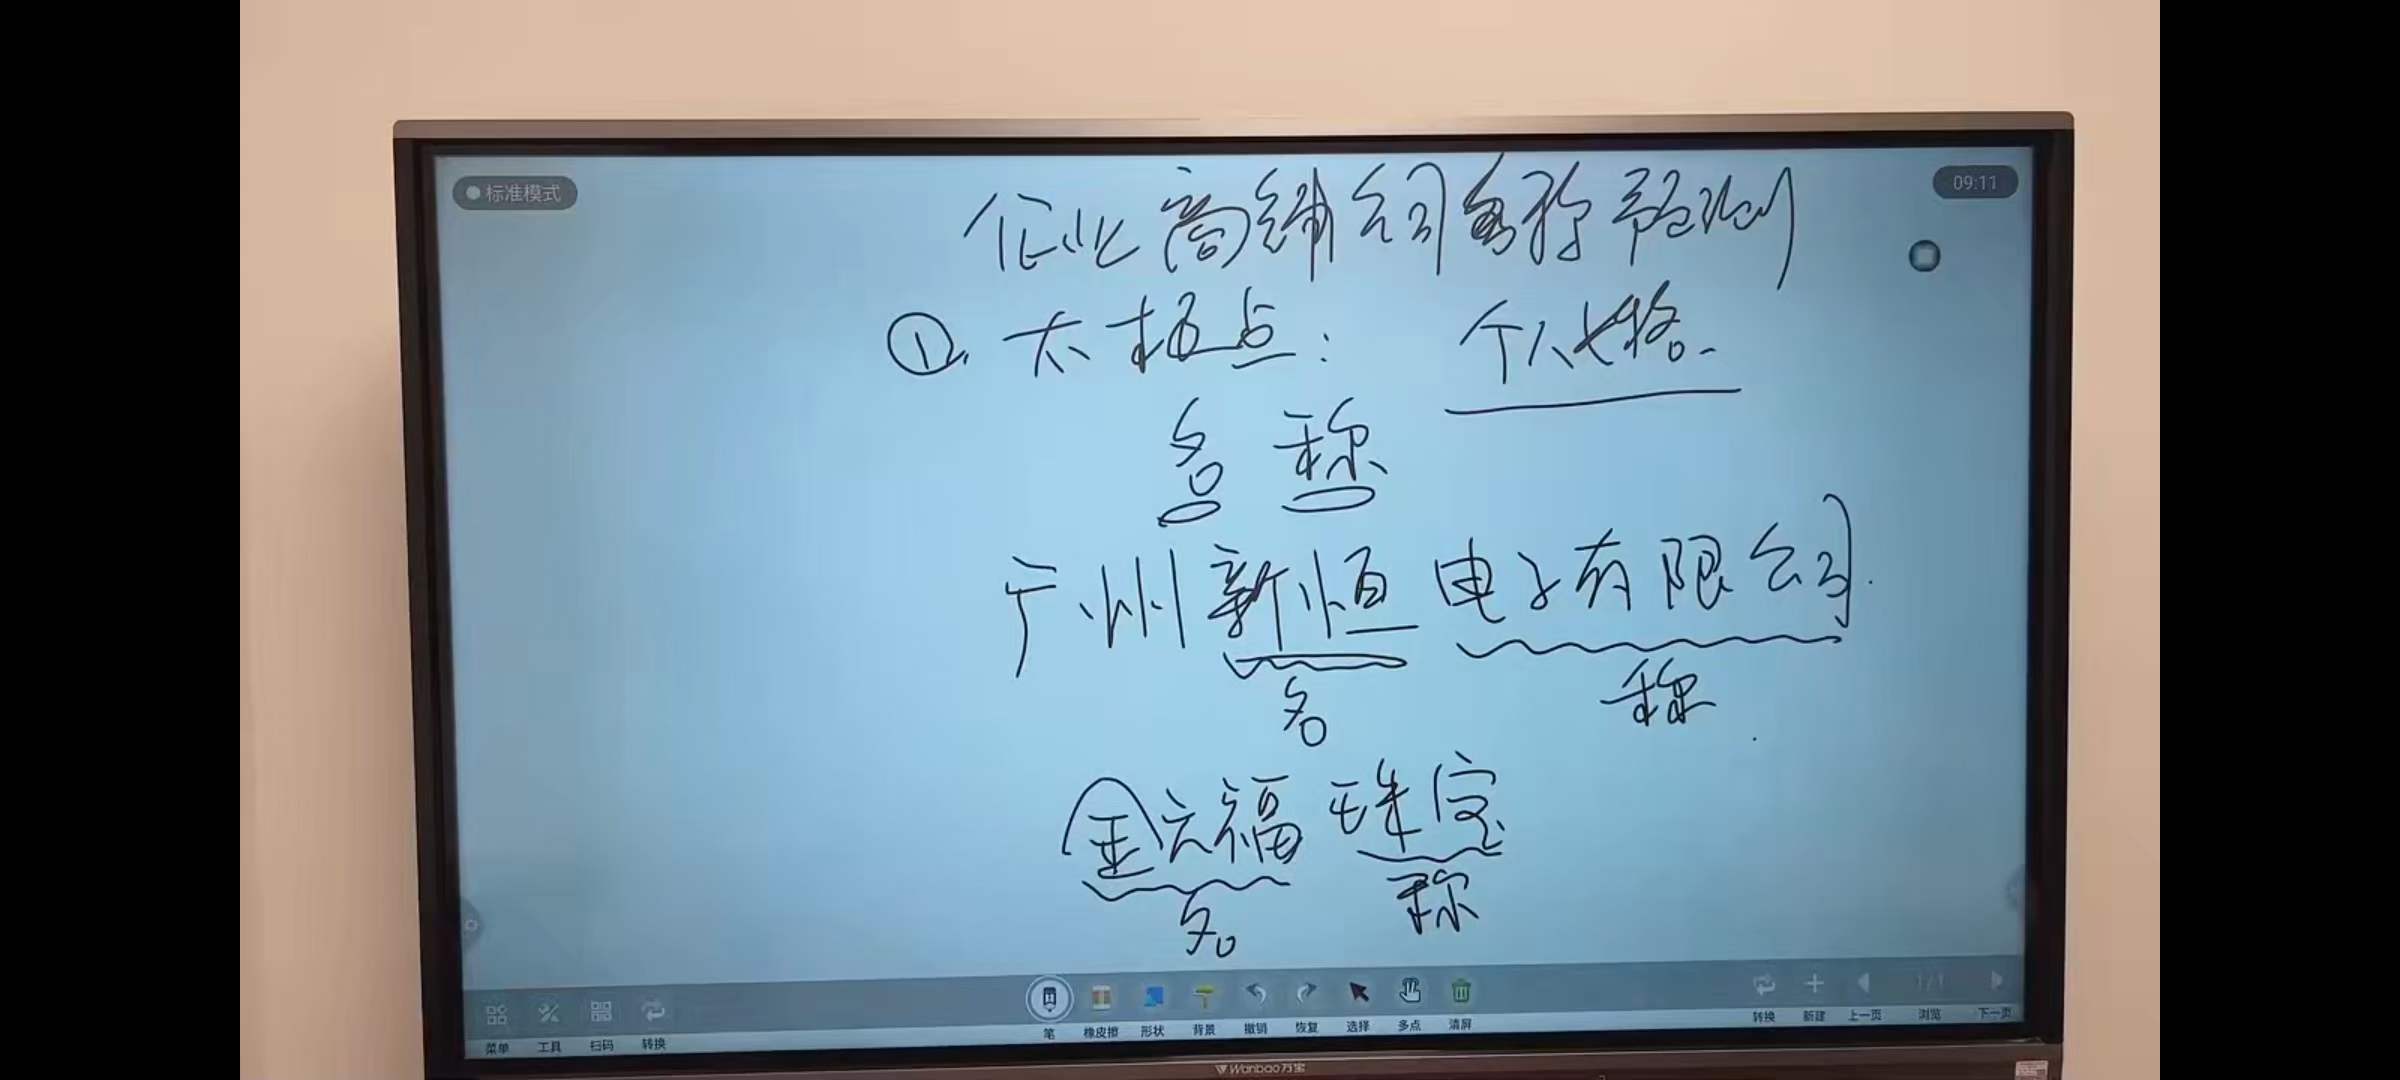 标准模式
09:11
企业商铺公司名称预测
①. 太极点： 个人七格.
名 称
广州新恒电子有限公司.
名 称
金六福珠宝
名 称
菜单 工具 扫码 转换 笔 橡皮擦 形状 背景 撤销 恢复 选择 多点 清屏 转换 新建 上一页 浏览 下一页
1/1
Wanbao万宝